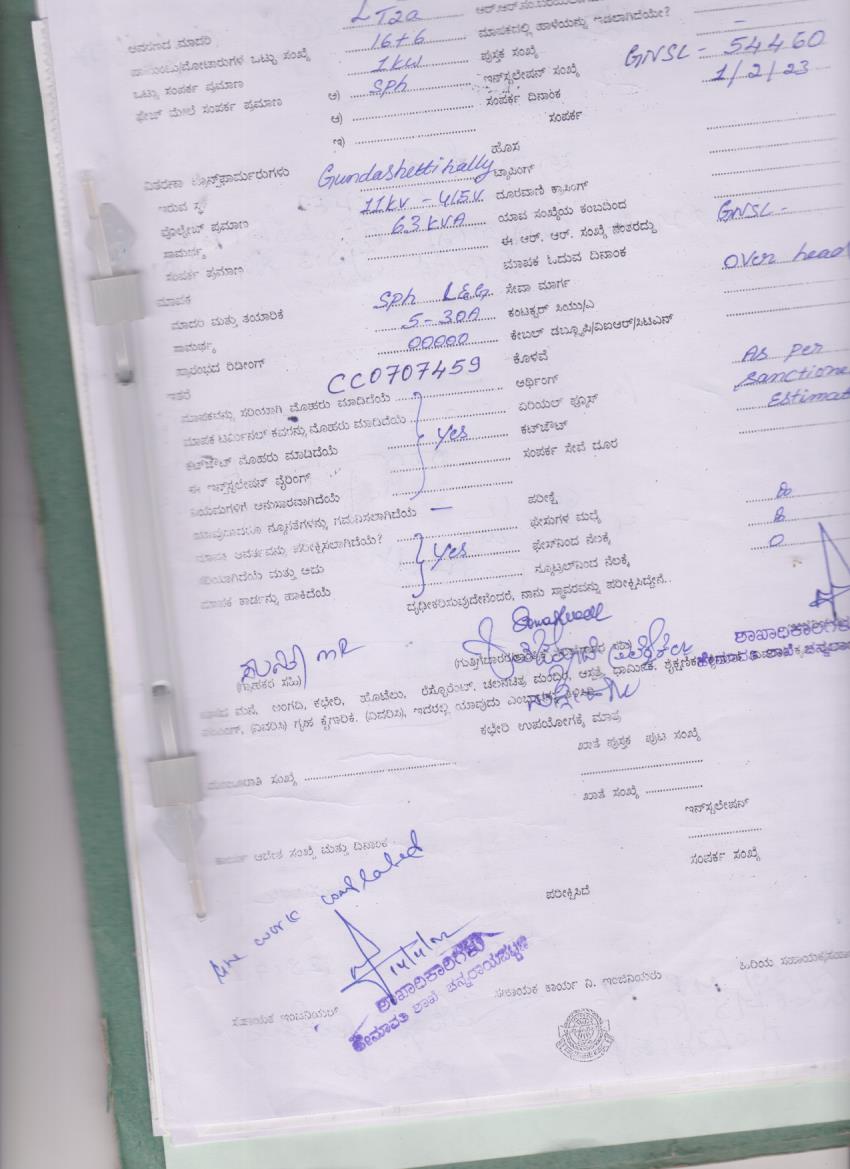 LT2a ಆರ್.ಆರ್.ಸಂ.
ಆವರಣದ ಮಾದರಿ 16+6 ಮಾಪಕದಲ್ಲಿ ಹಾಳೆಯನ್ನು ಇಡಲಾಗಿದೆಯೇ? -
ಒಟ್ಟು ಸಂಖ್ಯೆ 1kw ಪುಸ್ತಕ ಸಂಖ್ಯೆ GNSL - 54460
ಒಟ್ಟು ಸಂಪರ್ಕ ಪ್ರಮಾಣ ಅ) Sph ಇನ್‌ಸ್ಟಲೇಷನ್ ಸಂಖ್ಯೆ 1/2/23
ಫೇಜ್ ಮೇಲೆ ಸಂಪರ್ಕ ಪ್ರಮಾಣ ಆ) ಸಂಪರ್ಕ ದಿನಾಂಕ
ಇ) ಸಂಪರ್ಕ
ಹೊಸ
ವಿತರಣಾ ಟ್ರಾನ್ಸ್‌ಫಾರ್ಮರುಗಳು Gundashettihally ಟ್ಯಾಪಿಂಗ್
ಇರುವ ಸ್ಥಳ 11kv - 415V ದೂರವಾಣಿ ಕ್ರಾಸಿಂಗ್
ವೊಲ್ಟೇಜ್ ಪ್ರಮಾಣ 63 KVA ಯಾವ ಸಂಖ್ಯೆಯ ಕಂಬದಿಂದ
ಸಾಮರ್ಥ್ಯ ಈ ಆರ್. ಆರ್. ಸಂಖ್ಯೆ ನಂತರದ್ದು GNSL -
ಸಂಪರ್ಕ ಪ್ರಮಾಣ ಮಾಪಕ ಓದುವ ದಿನಾಂಕ
ಮಾಪಕ Sph L&G ಸೇವಾ ಮಾರ್ಗ Over head
ಮಾದರಿ ಮತ್ತು ತಯಾರಿಕೆ 5-30A ಕಂಟಕ್ಟರ್ ಸಿಯು/ಎ
ಸಾಮರ್ಥ್ಯ 00000 ಕೇಬಲ್ ಡಬ್ಲ್ಯೂಪಿ/ವಿಐಆರ್/ಸಿಟಿಎಸ್
ಪ್ರಾರಂಭದ ರಿಡೀಂಗ್ CC0707459 ಕೊಳವೆ As per
ಇತರೆ ಅರ್ಥಿಂಗ್ sanctione
ಮಾಪಕವನ್ನು ಸರಿಯಾಗಿ ಮೊಹರು ಮಾಡಿದೆಯೆ ಏರಿಯಲ್ ಫ್ಯೂಸ್ Estimat
ಮಾಪಕ ಟರ್ಮಿನಲ್ ಕವರನ್ನು ಮೊಹರು ಮಾಡಿದೆಯೆ Yes ಕಟ್‌ಔಟ್
ಕಟ್‌ಔಟ್ ಮೊಹರು ಮಾಡಿದೆಯೆ ಸಂಪರ್ಕ ಸೇವೆ ದೂರ
ಈ ಇನ್‌ಸ್ಟಲೇಷನ್ ವೈರಿಂಗ್
ನಿಯಮಗಳಿಗೆ ಅನುಸಾರವಾಗಿದೆಯೆ ಪರೀಕ್ಷೆ
ಯಾವುದಾದರೂ ನ್ಯೂನತೆಗಳನ್ನು ಗಮನಿಸಲಾಗಿದೆಯೆ - ಫೇಸುಗಳ ಮಧ್ಯೆ
ಪರೀಕ್ಷಿಸಲಾಗಿದೆಯೆ? ಫೇಸ್‌ನಿಂದ ನೆಲಕ್ಕೆ
ಸರಿಯಾಗಿದೆಯೆ ಮತ್ತು ಅದು Yes ನ್ಯೂಟ್ರಲ್‌ನಿಂದ ನೆಲಕ್ಕೆ 0
ಮಾಪಕ ಕಾರ್ಡನ್ನು ಹಾಕಿದೆಯೆ
ದೃಢೀಕರಿಸುವುದೇನೆಂದರೆ, ನಾನು ಸ್ಥಾವರವನ್ನು ಪರೀಕ್ಷಿಸಿದ್ದೇನೆ..
ಶಾಖಾಧಿಕಾರಿಗಳು
ಹೇಮಾವತಿ ಶಾಖೆ ಚನ್ನರಾ
(ಗ್ರಾಹಕರ ಸಹಿ)
ಮನೆ, ಅಂಗಡಿ, ಕಛೇರಿ, ಹೊಟೆಲು, ರೆಸ್ಟೊರೆಂಟ್, ಚಲನಚಿತ್ರ ಮಂದಿರ, ಆಸ್ಪತ್ರೆ, ಧಾರ್ಮಿಕ, ಶೈಕ್ಷಣಿಕ
(ವಿವರಿಸಿ) ಗೃಹ ಕೈಗಾರಿಕೆ. (ವಿವರಿಸಿ), ಇದರಲ್ಲಿ ಯಾವುದು
ಕಛೇರಿ ಉಪಯೋಗಕ್ಕೆ ಮಾತ್ರ
ಖಾತೆ ಪುಸ್ತಕ ಪುಟ ಸಂಖ್ಯೆ
ಮಂಜೂರಾತಿ ಸಂಖ್ಯೆ
ಖಾತೆ ಸಂಖ್ಯೆ
ಇನ್‌ಸ್ಟಲೇಷನ್
ಕಾರ್ಯ ಆದೇಶ ಸಂಖ್ಯೆ ಮತ್ತು ದಿನಾಂಕ
ಸಂಪರ್ಕ ಸಂಖ್ಯೆ
ಪರೀಕ್ಷಿಸಿದೆ
work
ಶಾಖಾಧಿಕಾರಿಗಳು
ಹೇಮಾವತಿ ಶಾಖೆ ಚನ್ನರಾಯಪಟ್ಟಣ
ಸಹಾಯಕ ಇಂಜಿನಿಯರ್ ಸಹಾಯಕ ಕಾರ್ಯ ನಿ. ಇಂಜಿನಿಯರು ಹಿರಿಯ